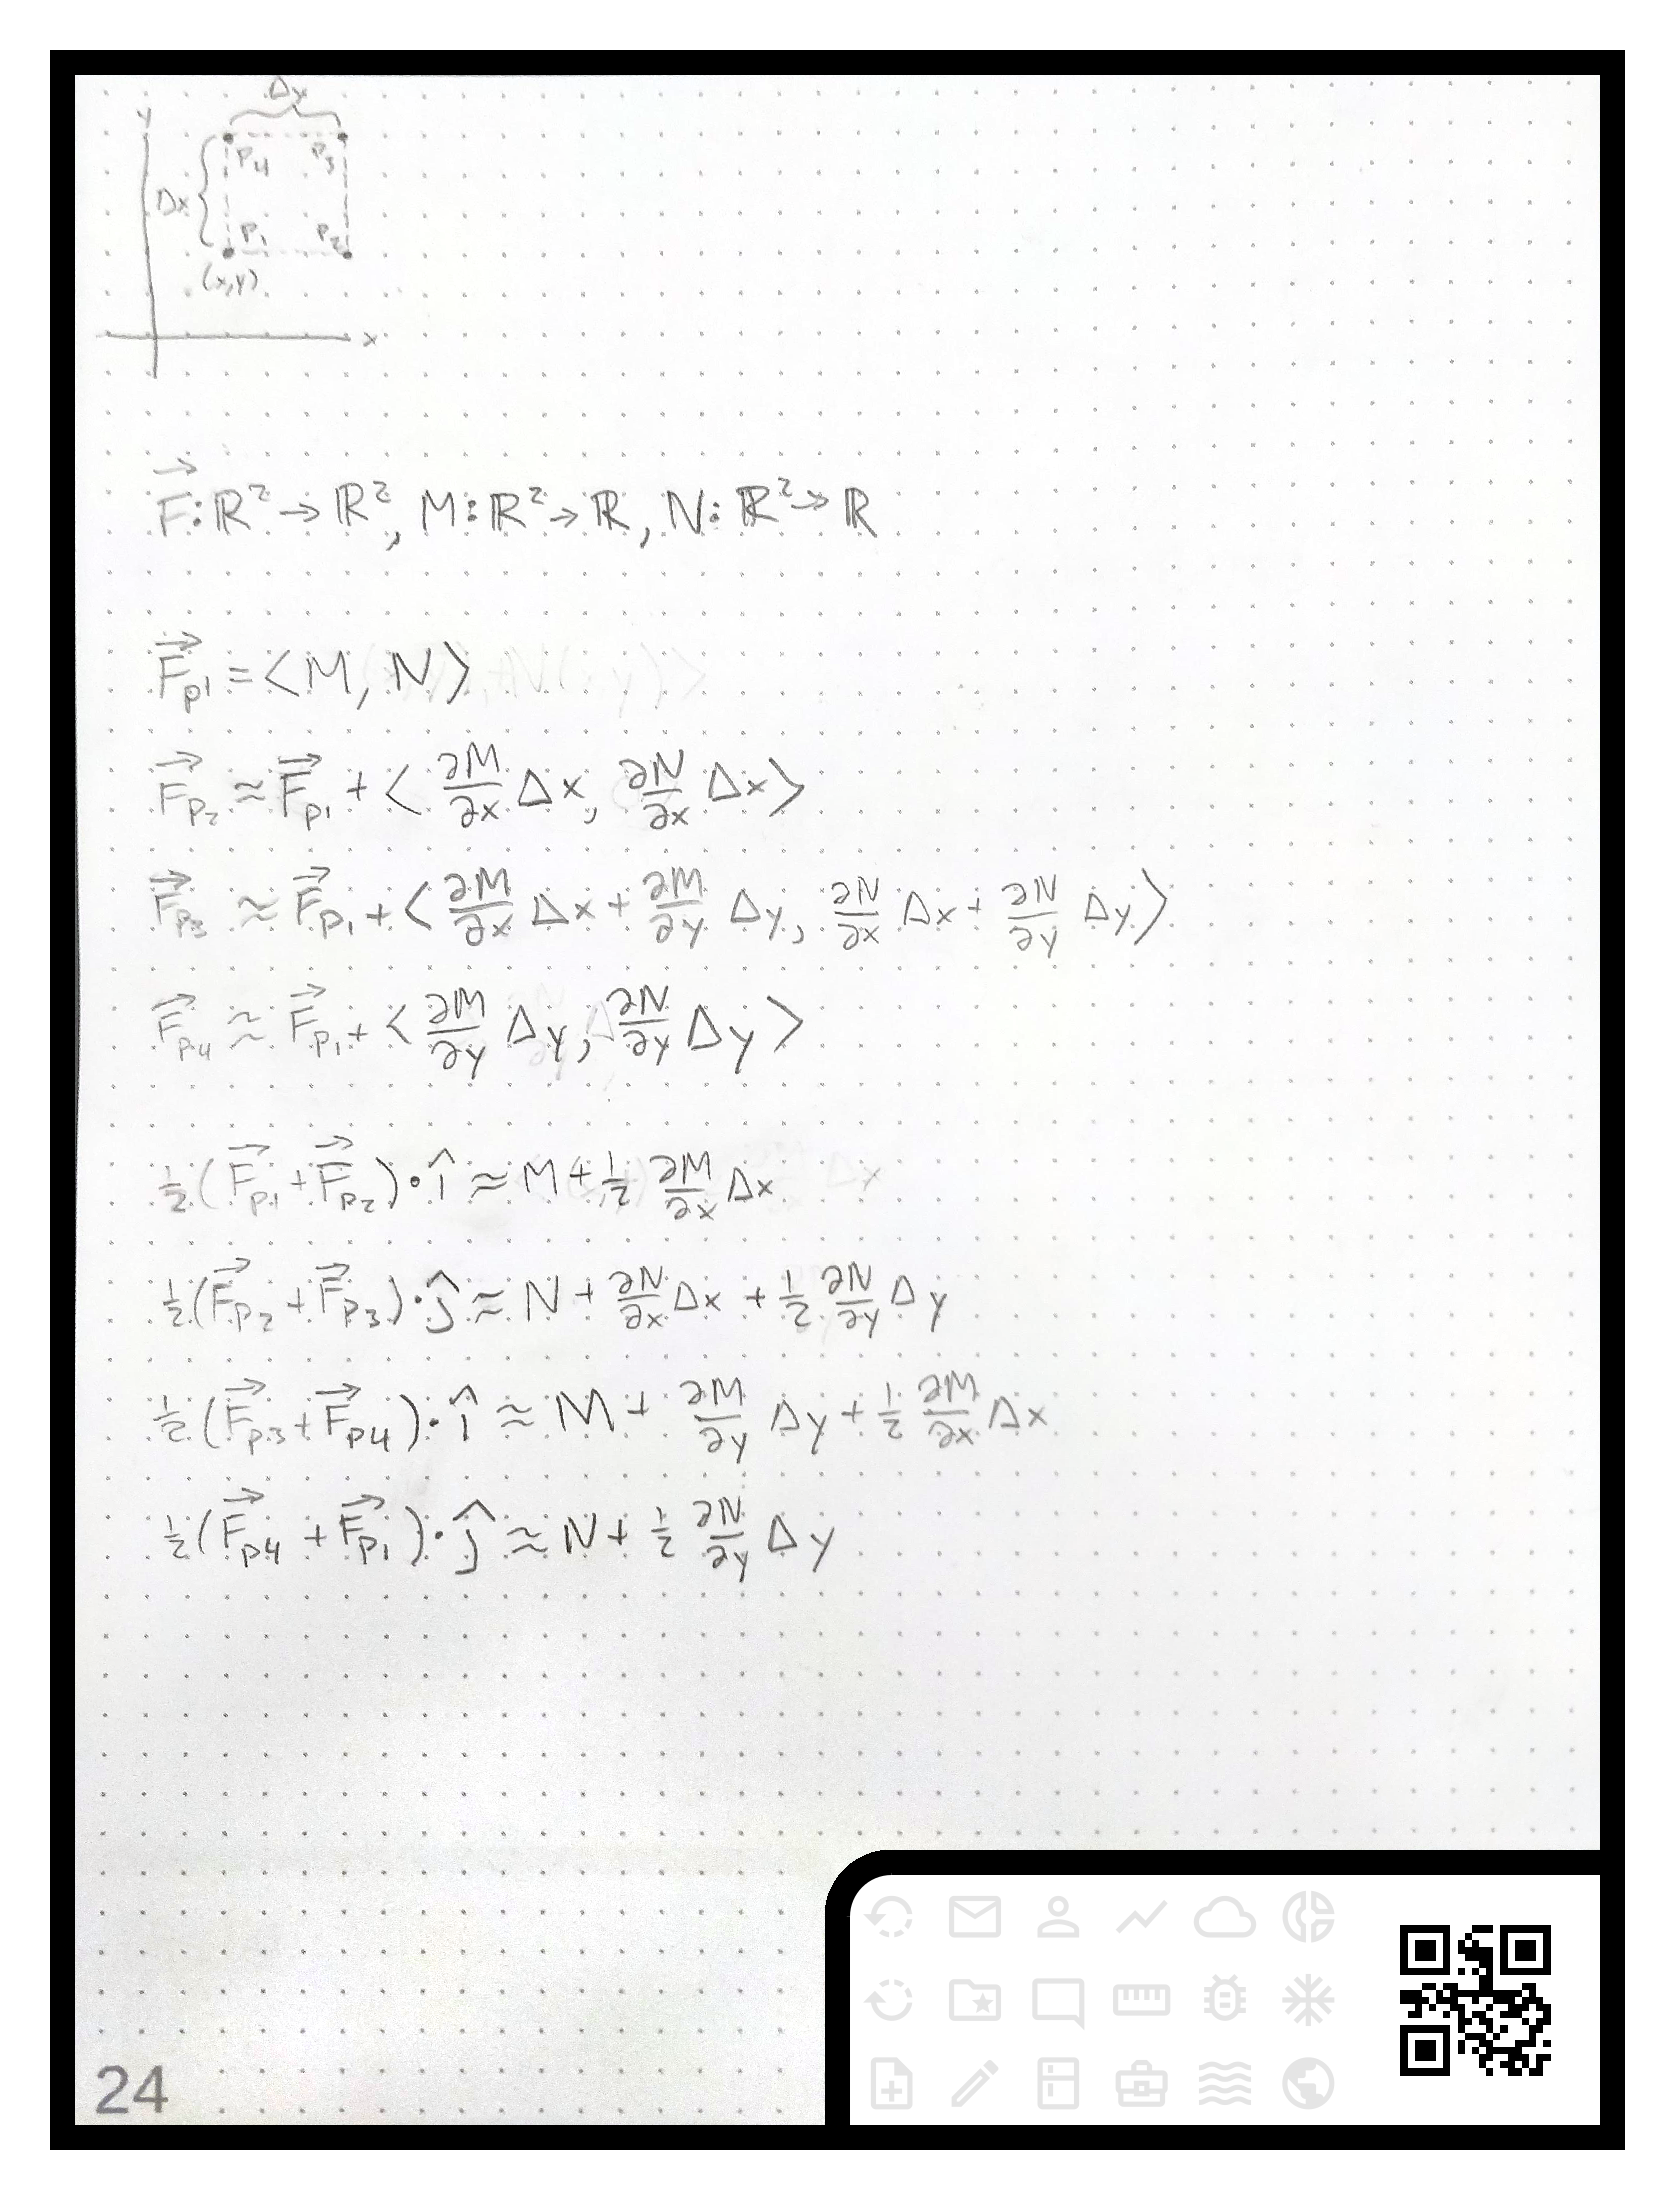 Δy
y
P4 P3
Δx
P1 P2
(x,y)
x
F⃗: ℝ² → ℝ², M: ℝ² → ℝ, N: ℝ² → ℝ
F⃗p1 = ⟨M, N⟩
F⃗p2 ≈ F⃗p1 + ⟨∂M/∂x Δx, ∂N/∂x Δx⟩
F⃗p3 ≈ F⃗p1 + ⟨∂M/∂x Δx + ∂M/∂y Δy, ∂N/∂x Δx + ∂N/∂y Δy⟩
F⃗p4 ≈ F⃗p1 + ⟨∂M/∂y Δy, ∂N/∂y Δy⟩
½(F⃗p1 + F⃗p2)·î ≈ M + ½ ∂M/∂x Δx
½(F⃗p2 + F⃗p3)·ĵ ≈ N + ∂N/∂x Δx + ½ ∂N/∂y Δy
½(F⃗p3 + F⃗p4)·î ≈ M + ∂M/∂y Δy + ½ ∂M/∂x Δx
½(F⃗p4 + F⃗p1)·ĵ ≈ N + ½ ∂N/∂y Δy
24